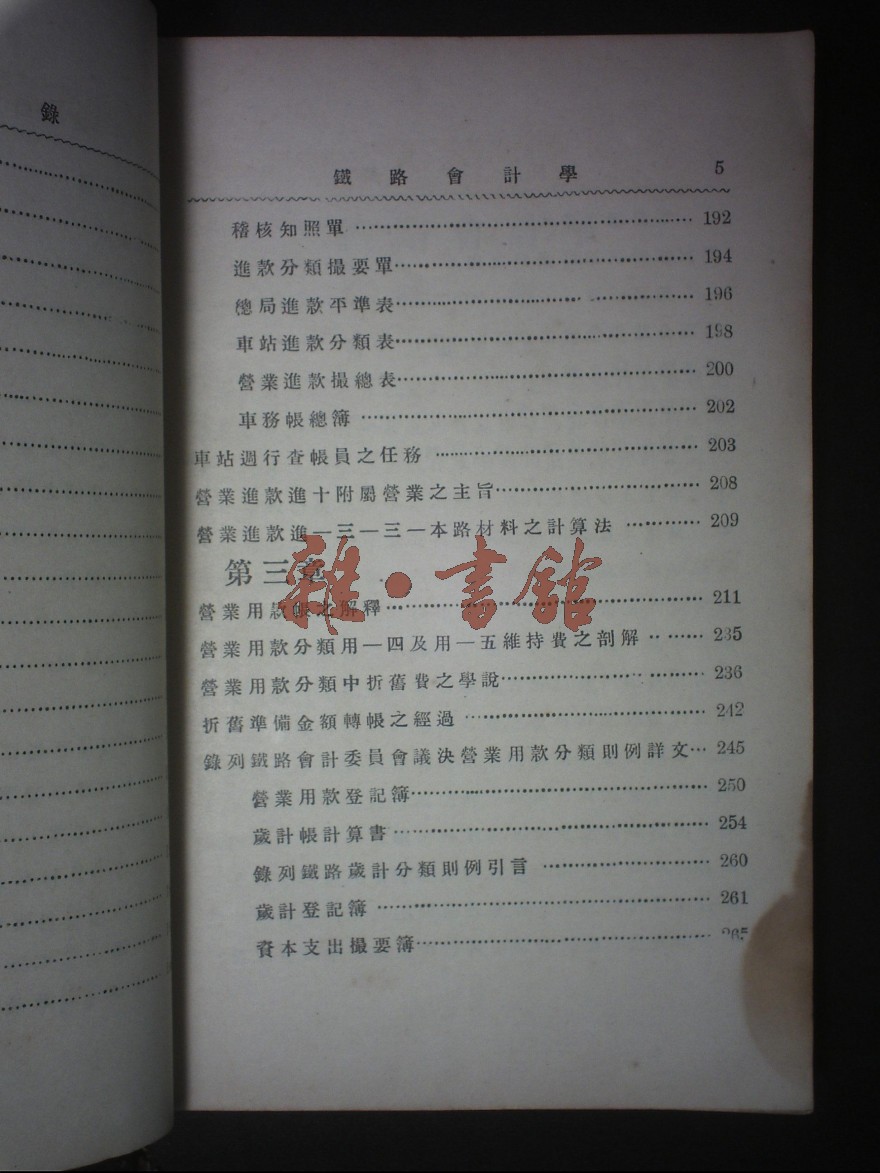 錄
鐵路會計學 5
稽核知照單 192
進款分類撮要單 194
總局進款平準表 196
車站進款分類表 198
營業進款撮總表 200
車務帳總簿 202
車站週行查帳員之任務 203
營業進款進十附屬營業之主旨 208
營業進款進一三一三一本路材料之計算法 209
第三章
雜·書館
營業用款帳之解釋 211
營業用款分類用一四及用一五維持費之剖解 235
營業用款分類中折舊費之學說 236
折舊準備金額轉帳之經過 242
錄列鐵路會計委員會議決營業用款分類則例詳文 245
營業用款登記簿 250
歲計帳計算書 254
錄列鐵路歲計分類則例引言 260
歲計登記簿 261
資本支出撮要簿 265